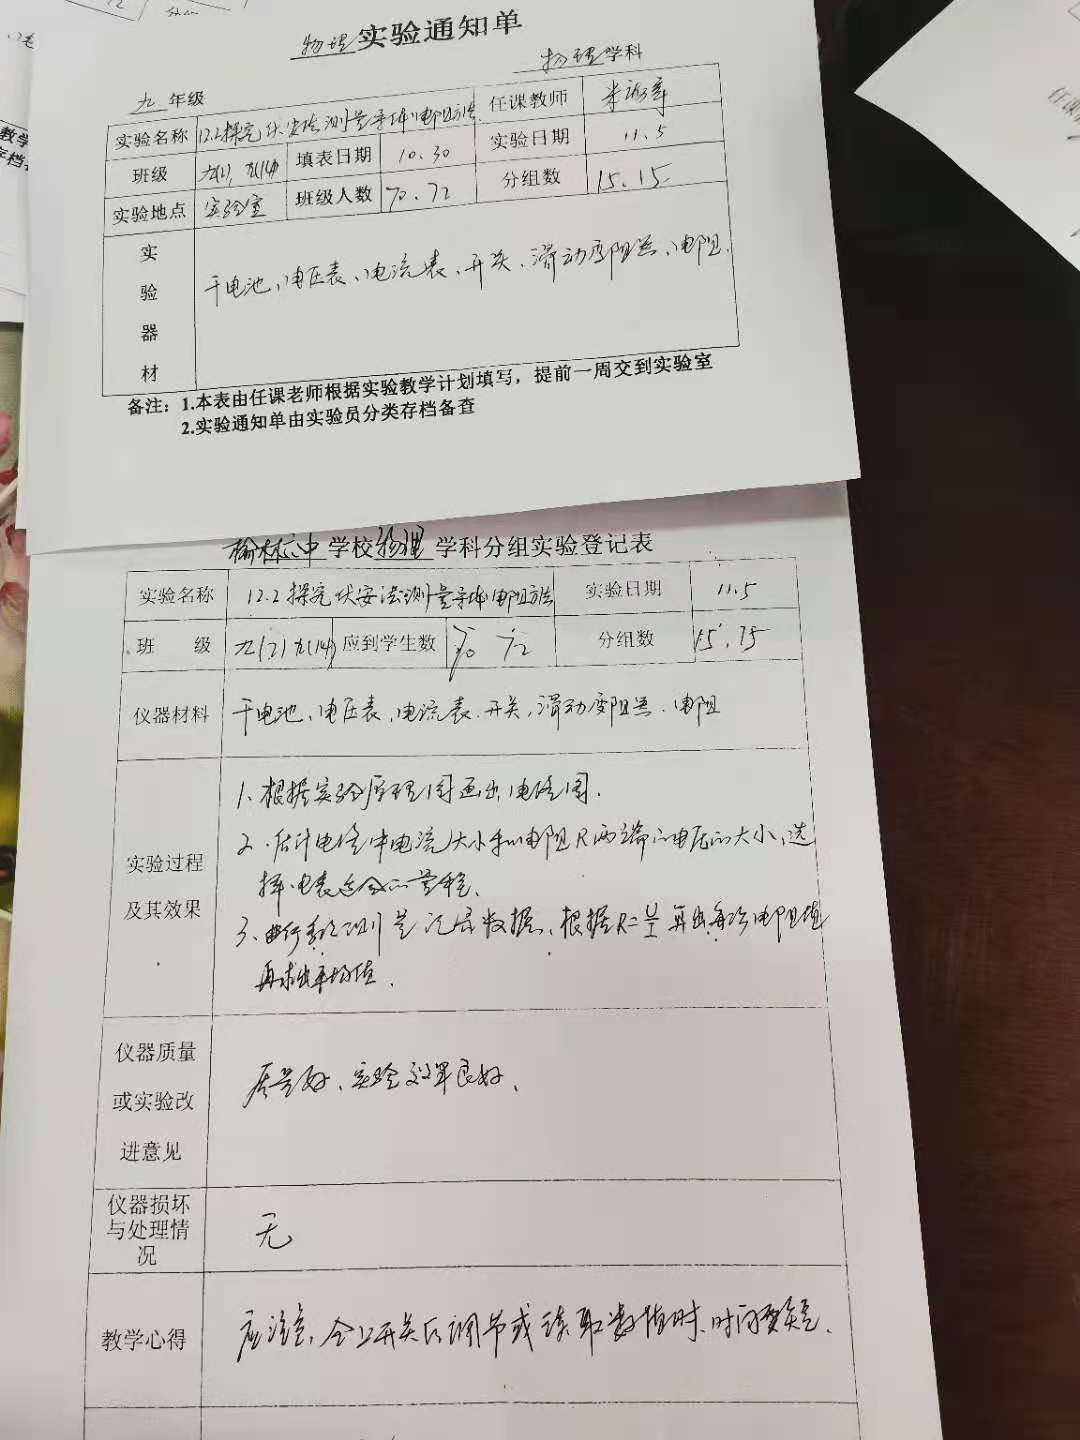 物理实验通知单
物理学科
九 年级
实验名称 12.2探究伏安法测量导体电阻方法 任课教师
班级 九(2), 九(14) 填表日期 10.30 实验日期 11.5
实验地点 实验室 班级人数 70、72 分组数 15、15
实验器材 干电池、电压表、电流表、开关、滑动变阻器、电阻.
备注：1.本表由任课老师根据实验教学计划填写，提前一周交到实验室
2.实验通知单由实验员分类存档备查
榆林 中 学校 物理 学科分组实验登记表
实验名称 12.2 探究伏安法测量导体电阻方法 实验日期 11.5
班 级 九(2) 九(14) 应到学生数 70 72 分组数 15、15
仪器材料 干电池、电压表、电流表、开关、滑动变阻器、电阻
实验过程及其效果
1、根据实验原理图画出电路图.
2、估计电路中电流大小和电阻R两端的电压的大小,选
择电表适合的量程.
3、进行多次测量记录数据、根据R=U/I算出每次电阻值
再求出平均值.
仪器质量或实验改进意见 质量好、实验效果良好.
仪器损坏与处理情况 无
教学心得 应注意,合上开关后调节或读取数据时、时间要短.